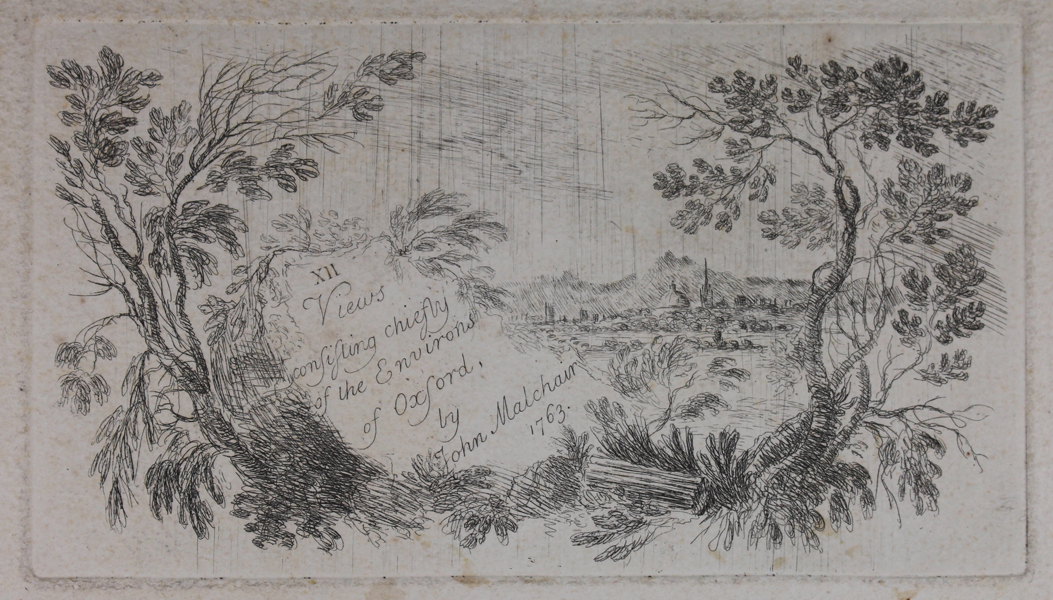 XII
Views
conſiſting chiefly
of the Environs
of Oxford,
by
John Malchair
1763.